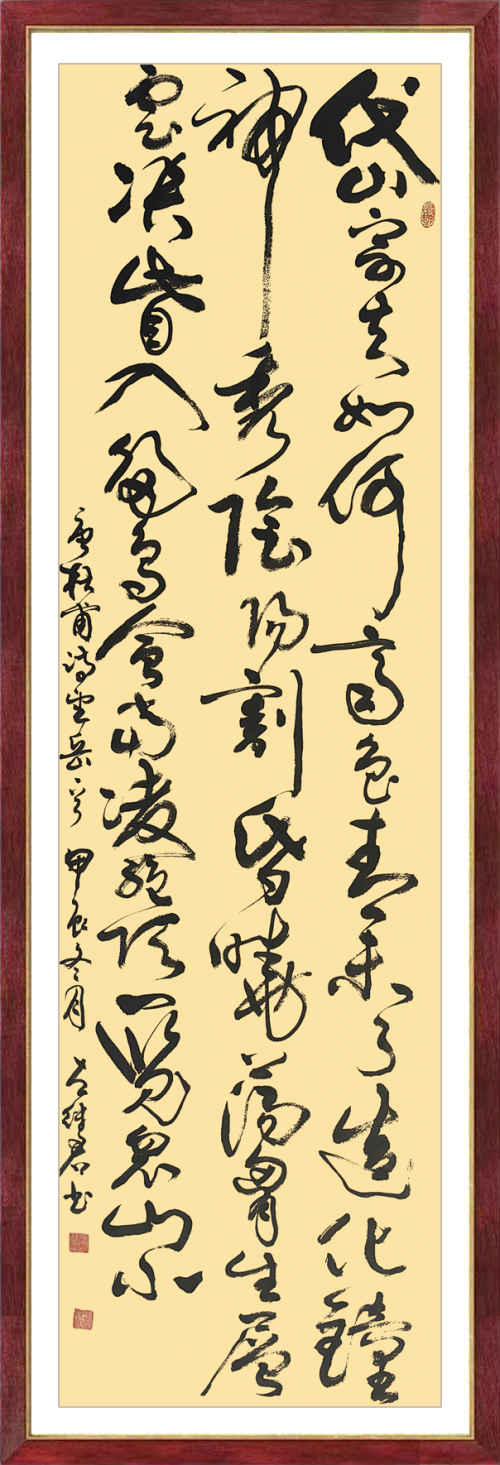 岱宗夫如何齊魯青未了造化鐘
神秀陰陽割昏曉蕩胷生層
雲决眥入歸鳥會當凌絕頂一覽眾山小
唐杜甫詩望岳一首 甲辰冬月 君书